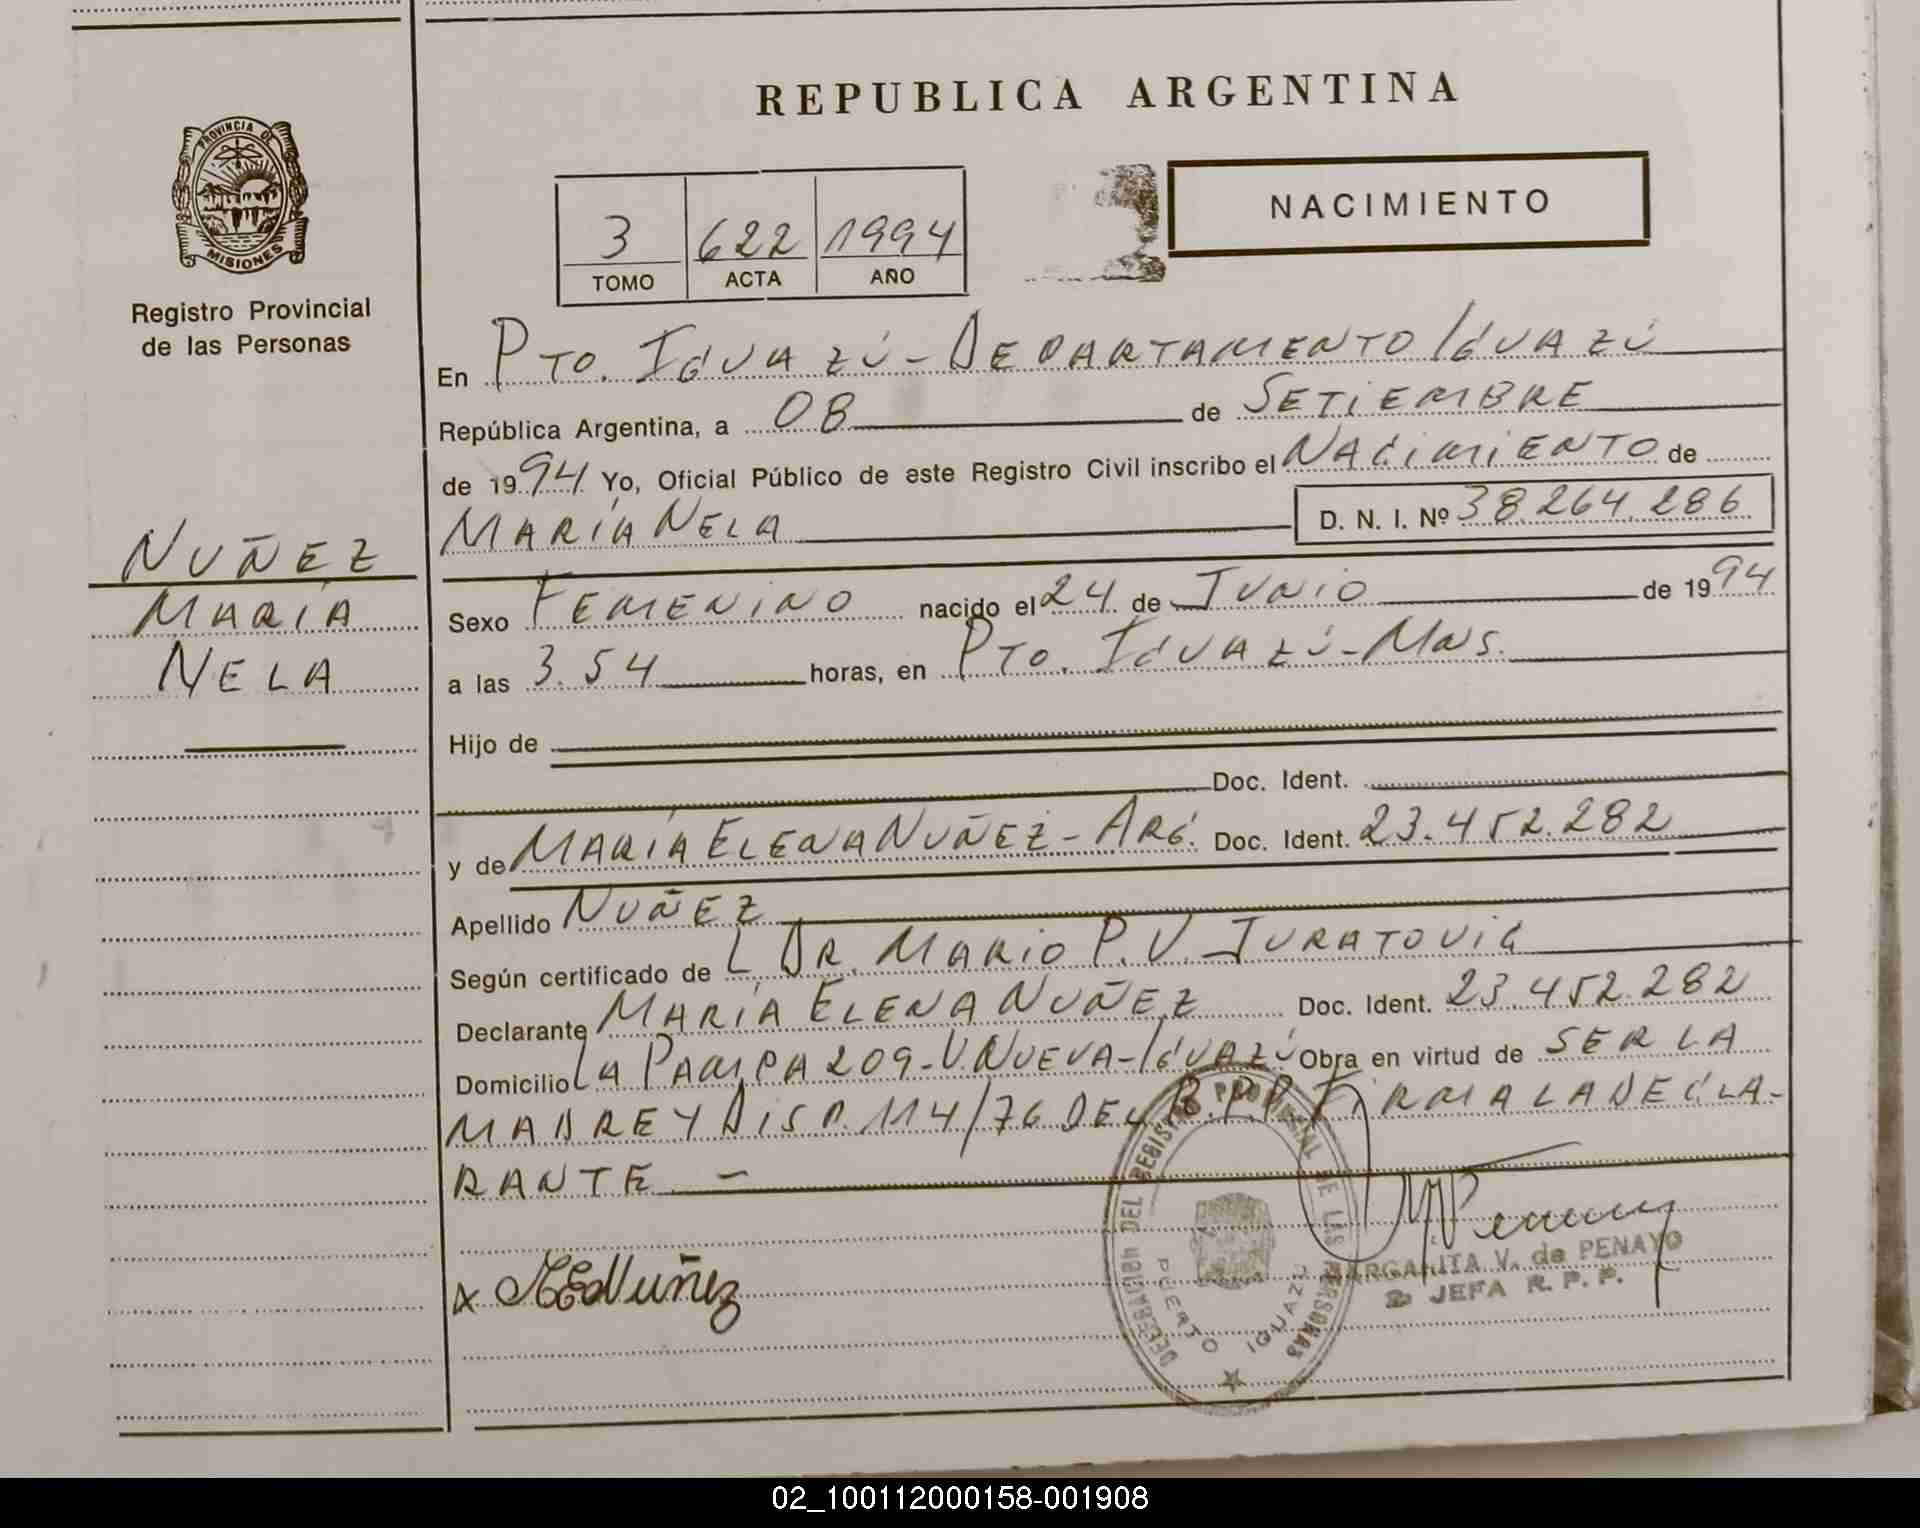 REPUBLICA ARGENTINA
PROVINCIA DE
MISIONES
Registro Provincial
de las Personas
3 622 1994
TOMO ACTA AÑO
NACIMIENTO
En PTO. IGUAZÚ - DEPARTAMENTO IGUAZÚ
República Argentina, a 08 de SETIEMBRE
de 1994 Yo, Oficial Público de este Registro Civil inscribo el NACIMIENTO de
MARÍA NELA D. N. I. Nº 38.264.286
NUÑEZ
MARÍA
NELA
Sexo FEMENINO nacido el 24 de JUNIO de 1994
a las 3.54 horas, en PTO. IGUAZÚ - MNS.
Hijo de
Doc. Ident.
y de MARÍA ELENA NUÑEZ - ARG. Doc. Ident. 23.452.282
Apellido NUÑEZ
Según certificado de L DR. MARIO P. V. JURATOVIC
Declarante MARÍA ELENA NUÑEZ Doc. Ident. 23.452.282
Domicilio LA PAMPA 209 - V. NUEVA - IGUAZÚ Obra en virtud de SER LA
MADRE Y DISP. 114/76 DEL R.P.P. FIRMA LA DECLA-
RANTE -
x MENuñez
DEL REGISTRO PROVINCIAL DE LAS PERSONAS
PUERTO IGUAZU
MARGARITA V. de PENAYO
JEFA R. P. P.
02_100112000158-001908